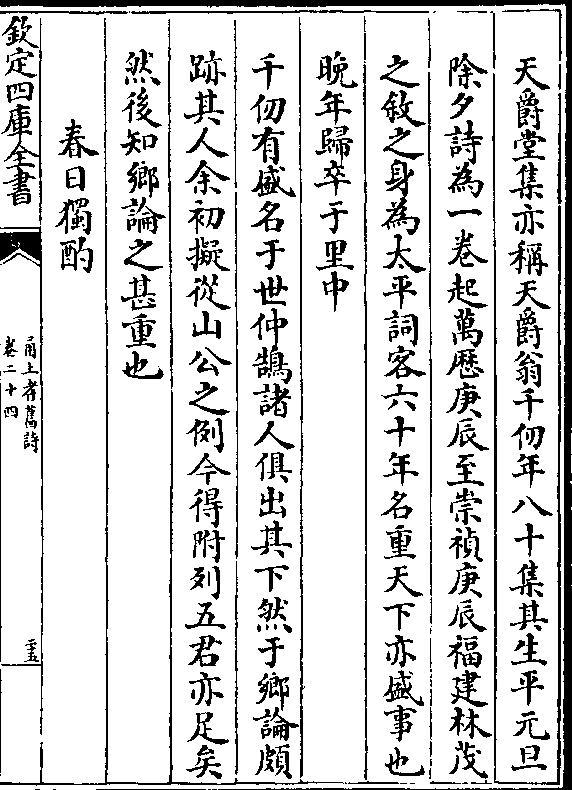 天爵堂集亦稱天爵翁千仞年八十集其生平元旦
除夕詩為一卷起萬歷庚辰至崇禎庚辰福建林茂
之敘之身為太平詞客六十年名重天下亦盛事也
晚年歸卒于里中
千仞有盛名于世仲鵠諸人俱出其下然于鄉論頗
跡其人余初擬從山公之例今得附列五君亦足矣
然後知鄉論之甚重也
春日獨酌
欽定四庫全書
甬上耆舊詩
卷二十四
二十五